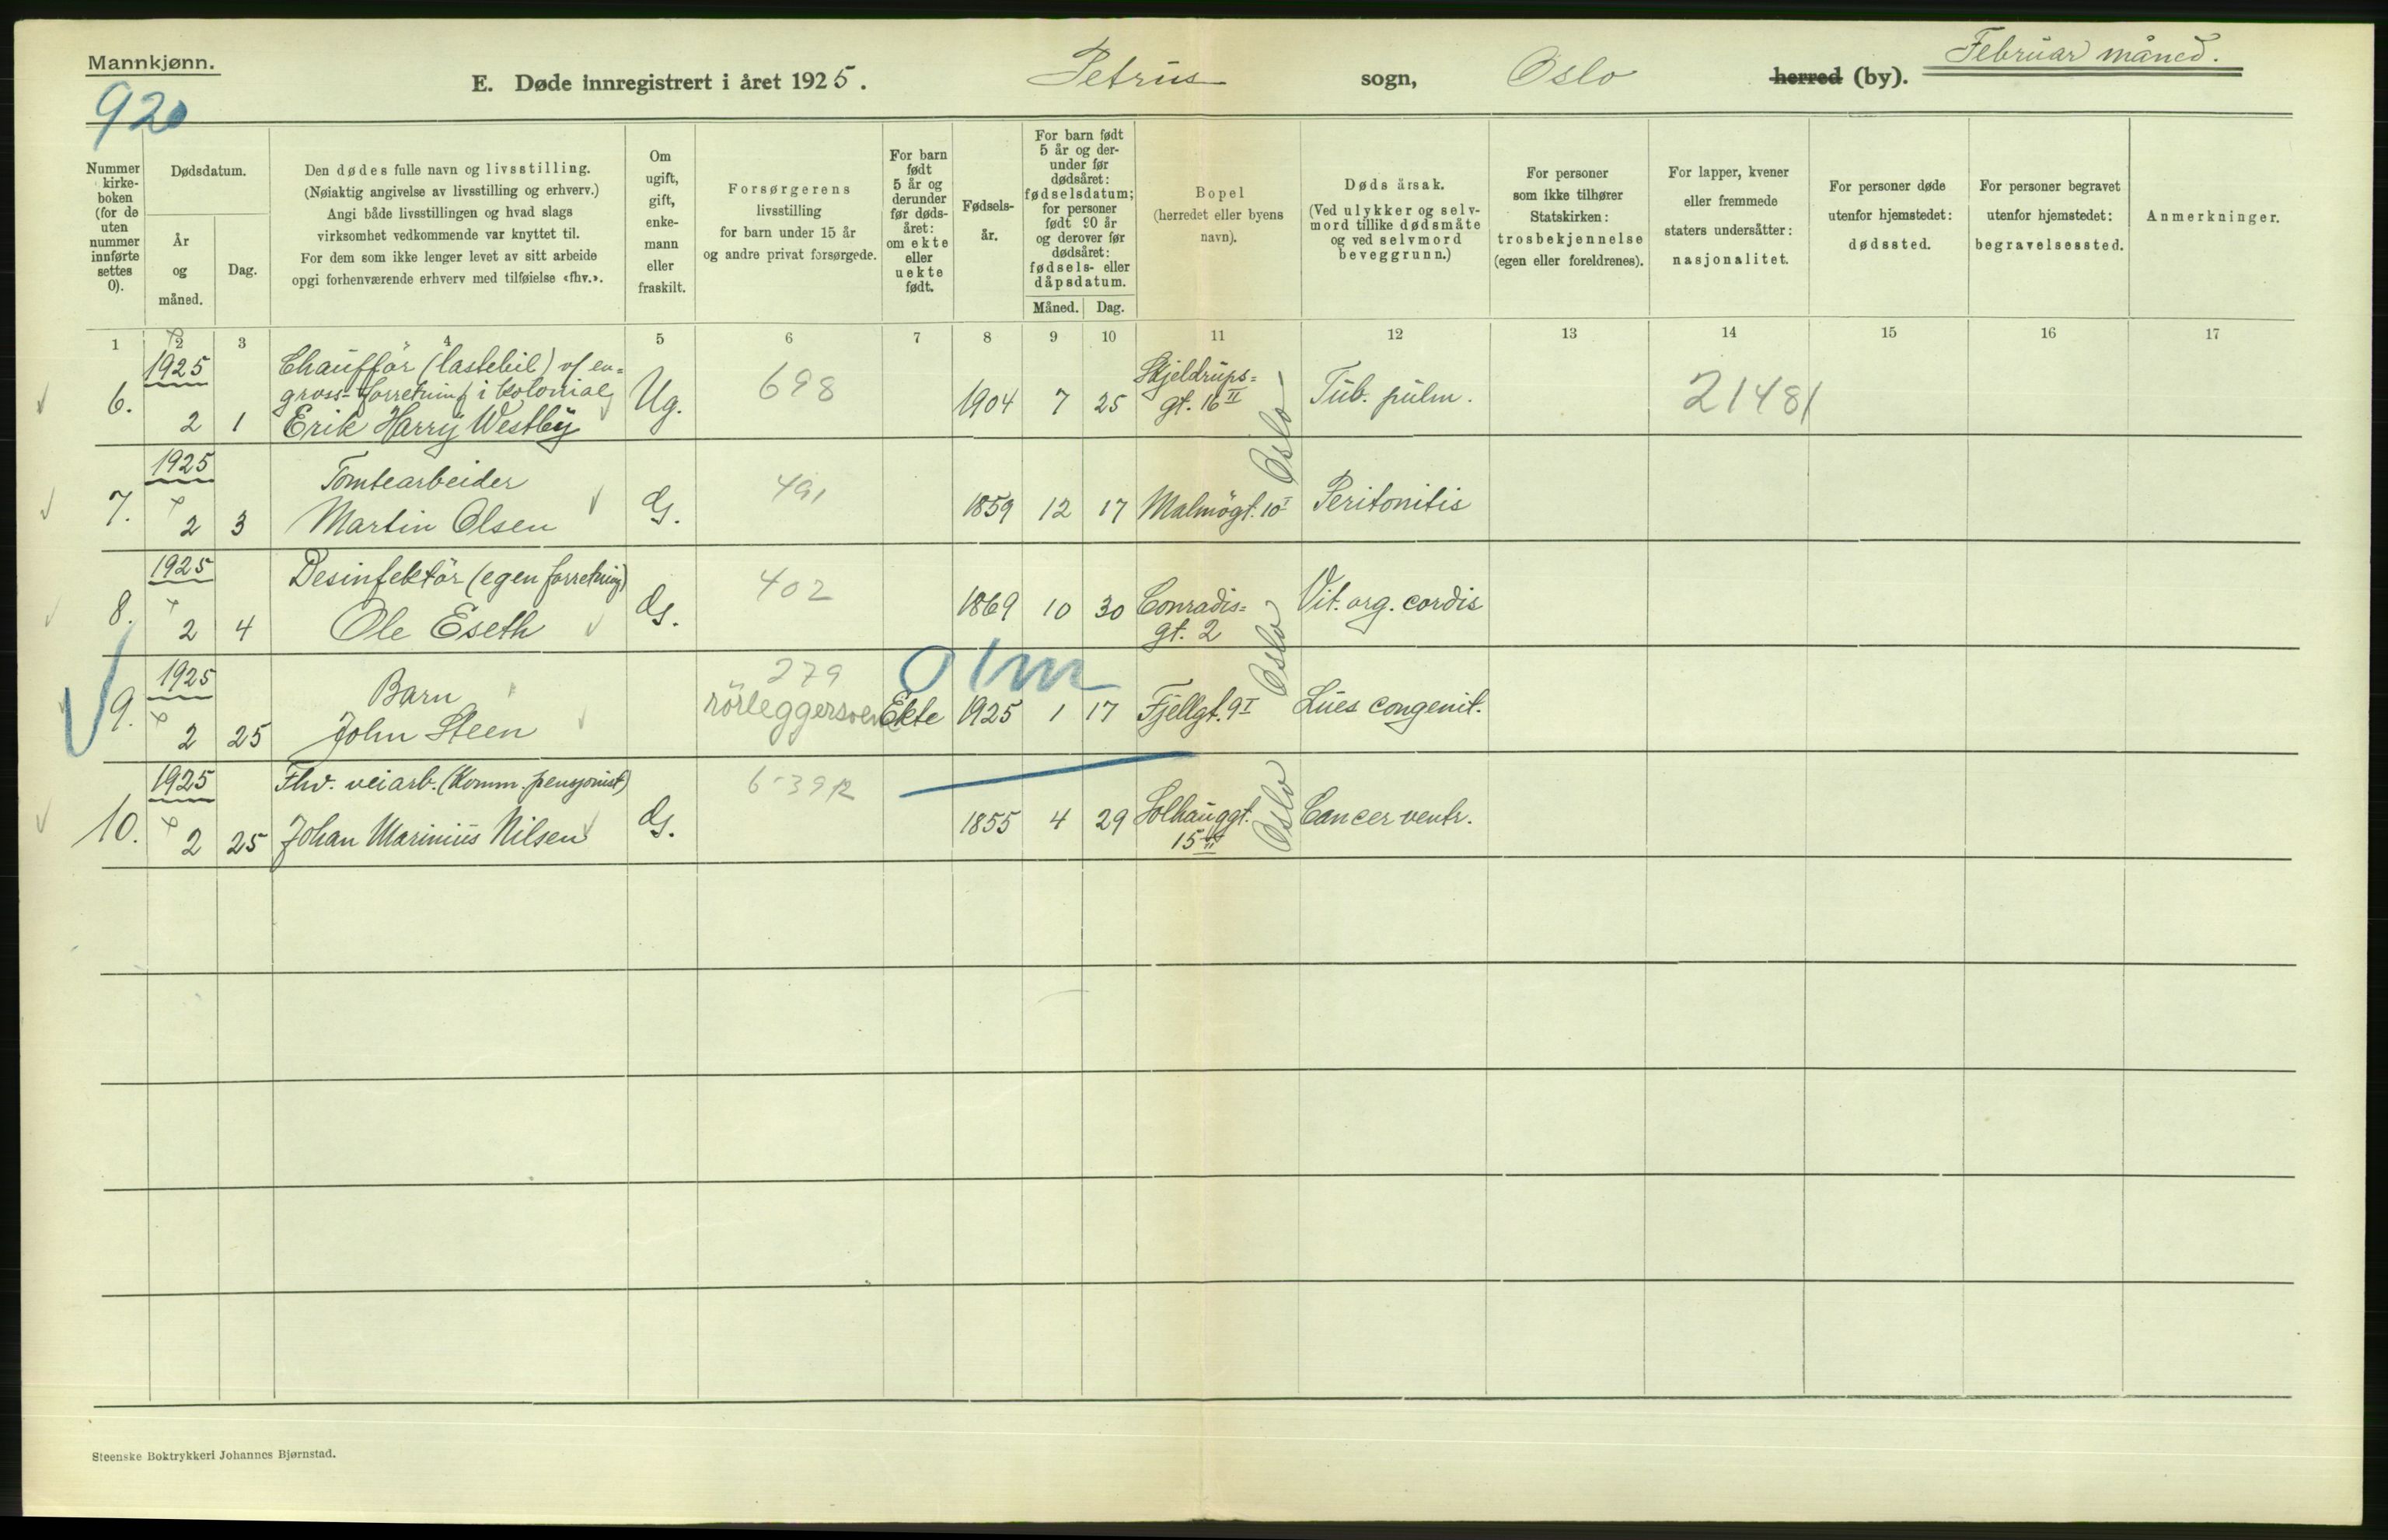 Mannkjønn.
920
E. Døde innregistrert i året 1925. Petrus sogn, Oslo herred (by). Februar måned.
Nummer i kirke-boken (for de uten nummer innførte settes 0).
Dødsdatum.
År og måned.
Dag.
Den dødes fulle navn og livsstilling.
(Nøiaktig angivelse av livsstilling og erhverv.)
Angi både livsstillingen og hvad slags
virksomhet vedkommende var knyttet til.
For dem som ikke lenger levet av sitt arbeide
opgi forhenværende erhverv med tilføielse «fhv.».
Om ugift, gift, enke-mann eller fraskilt.
Forsørgerens
livsstilling
for barn under 15 år
og andre privat forsørgede.
For barn født 5 år og derunder før døds-året: om ekte eller uekte født.
Fødsels-år.
For barn født 5 år og der-under før dødsåret: fødselsdatum; for personer født 90 år og derover før dødsåret: fødsels- eller dåpsdatum.
Måned. Dag.
Bopel
(herredet eller byens navn).
Døds årsak.
(Ved ulykker og selv-mord tillike dødsmåte og ved selvmord beveggrunn.)
For personer som ikke tilhører Statskirken: trosbekjennelse (egen eller foreldrenes).
For lapper, kvener eller fremmede staters undersåtter: nasjonalitet.
For personer døde utenfor hjemstedet: dødssted.
For personer begravet utenfor hjemstedet: begravelsessted.
Anmerkninger.
1 2 3 4 5 6 7 8 9 10 11 12 13 14 15 16 17
1925 Chaufför (lastebil) v/ en=
gross-forretning i kolonial
6. 2 1 Erik Harry Westby Ug. 698 1904 7 25 Skjeldrups=
gt. 16 II Oslo Tub. pulm. 21481
1925 Tomtearbeider
7. 2 3 Martin Olsen G. 491 1859 12 17 Malmögt. 10 I Peritonitis
1925 Desinfektör (egen forretning)
8. 2 4 Ole Eseth G. 402 1869 10 30 Conradis=
gt. 2 Oslo Vit. org. cordis
1925 Barn 279 01m
9. 2 25 John Steen rörleggersven Ekte 1925 1 17 Fjellgt. 9 I Lues congenit.
1925 Fhv. veiarb. (Komm. pensjonist)
10. 2 25 Johan Marinius Nilsen G. 1855 4 29 Solhauggt.
15 II Oslo Cancer ventr.
Steenske Boktrykkeri Johannes Bjørnstad.